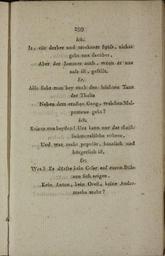 Ich.
Ja, ein derber und trockener Spaß, nichts
geht uns darüber,
Aber der Jammer auch, wenn er nur
naß ist, gefällt.
Er.
Also sieht man bey euch den leichten Tanz
der Thalia
Neben dem ernsten Gang, welchen Mel-
pomene geht?
Ich.
Keines von beyden! Uns kann nur das christ-
lich-moralische rühren,
Und was recht populär, häuslich und
bürgerlich ist.
Er.
Was? Es dürfte kein Cesar auf euren Büh-
nen sich zeigen,
Kein Anton, kein Orest, keine Andro-
macha mehr?